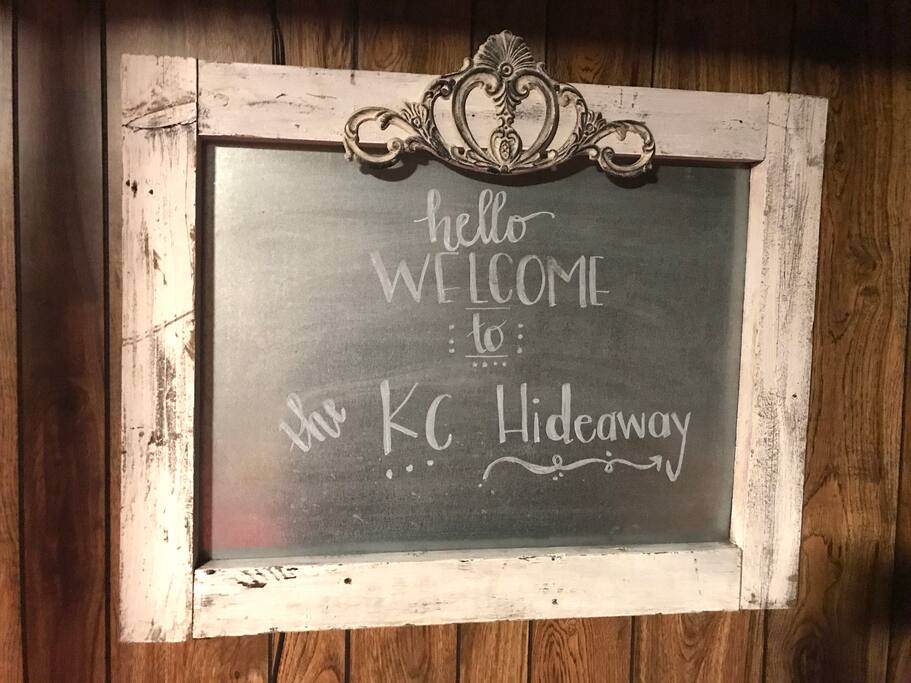 hello
WELCOME
to
the KC Hideaway